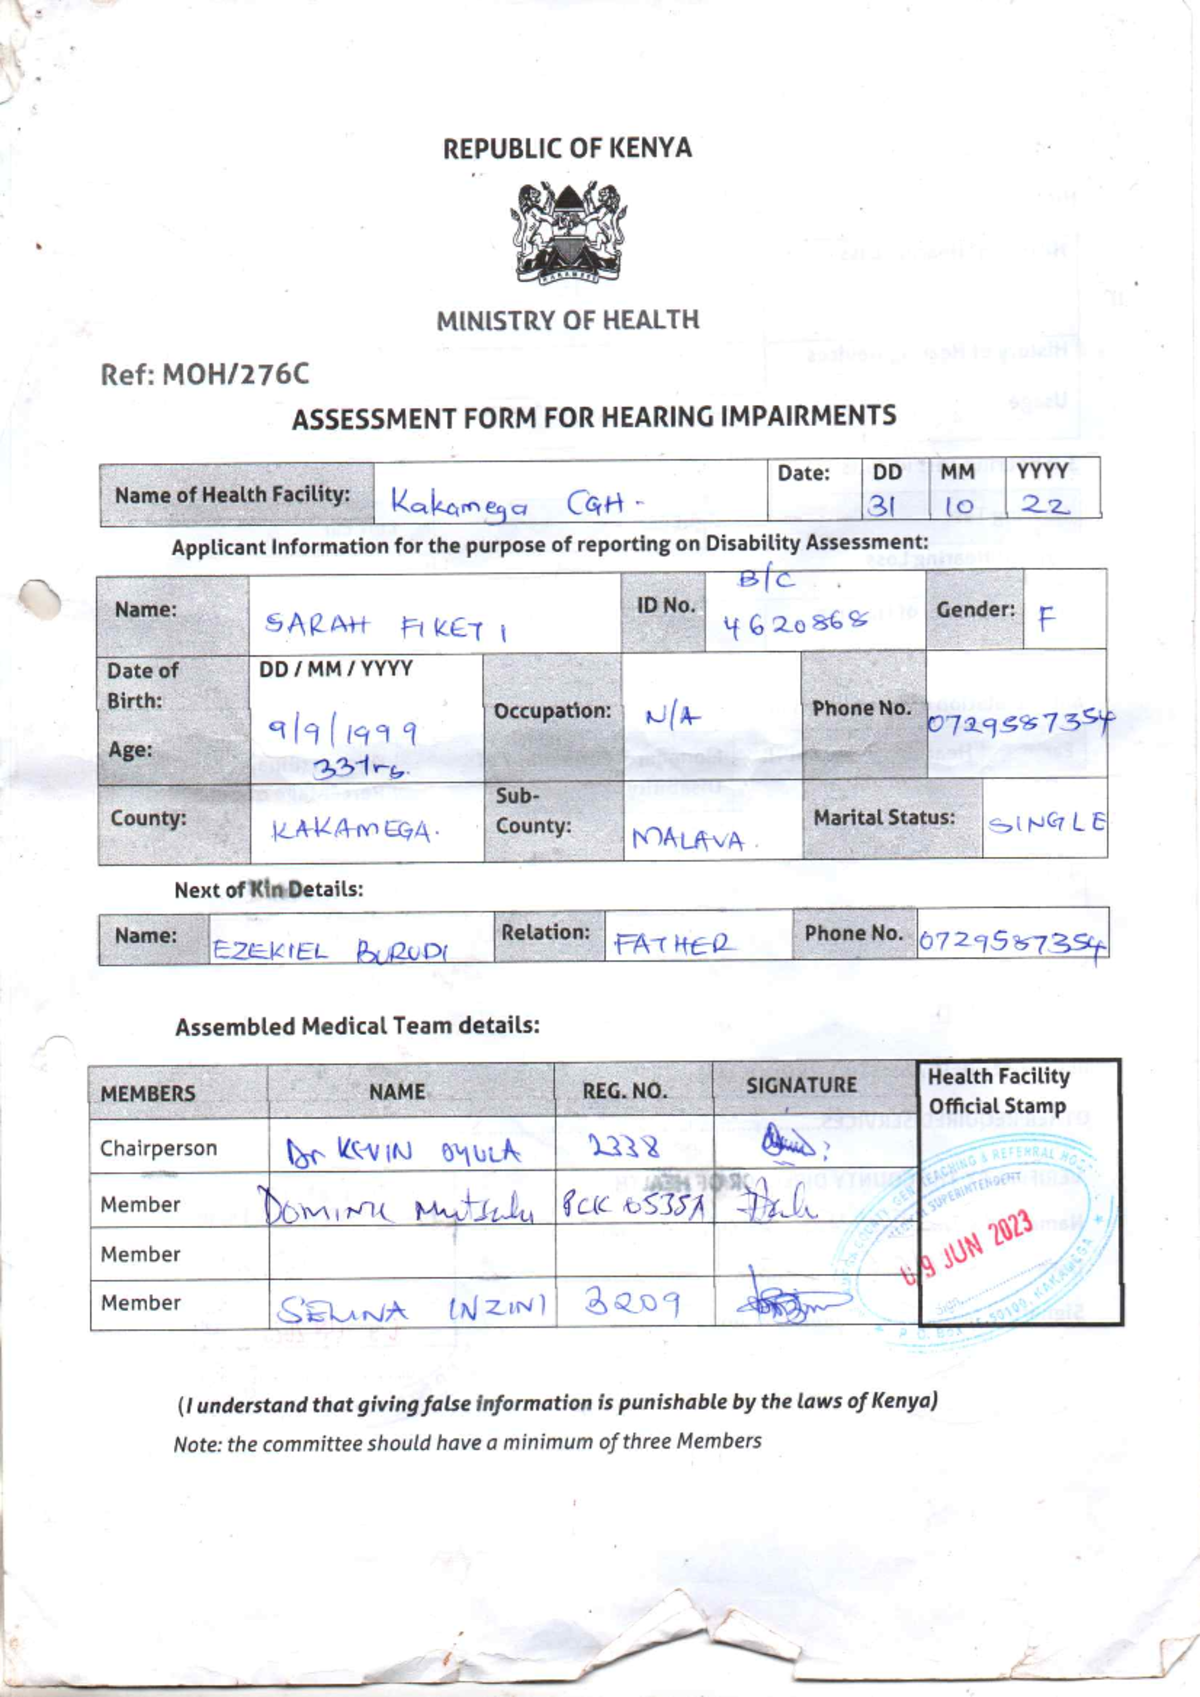 REPUBLIC OF KENYA
MINISTRY OF HEALTH
Ref: MOH/276C
ASSESSMENT FORM FOR HEARING IMPAIRMENTS
Name of Health Facility: Kakamega CGH. Date: DD MM YYYY
31 10 22
Applicant Information for the purpose of reporting on Disability Assessment:
Name: SARAH FIKETI ID No. B/C 4620868 Gender: F
Date of Birth: DD / MM / YYYY 9/9/1999 Occupation: N/A Phone No. 0729587354
Age: 33Yrs.
County: KAKAMEGA. Sub-County: MALAVA. Marital Status: SINGLE
Next of Kin Details:
Name: EZEKIEL BURUDI Relation: FATHER Phone No. 0729587354
Assembled Medical Team details:
MEMBERS NAME REG. NO. SIGNATURE Health Facility Official Stamp
Chairperson Dr KEVIN OYULA 2338
Member DOMINIC PCK 0535A
Member
Member SELINA INZINI 3209
09 JUN 2023
MEDICAL SUPERINTENDENT
Sign
(I understand that giving false information is punishable by the laws of Kenya)
Note: the committee should have a minimum of three Members